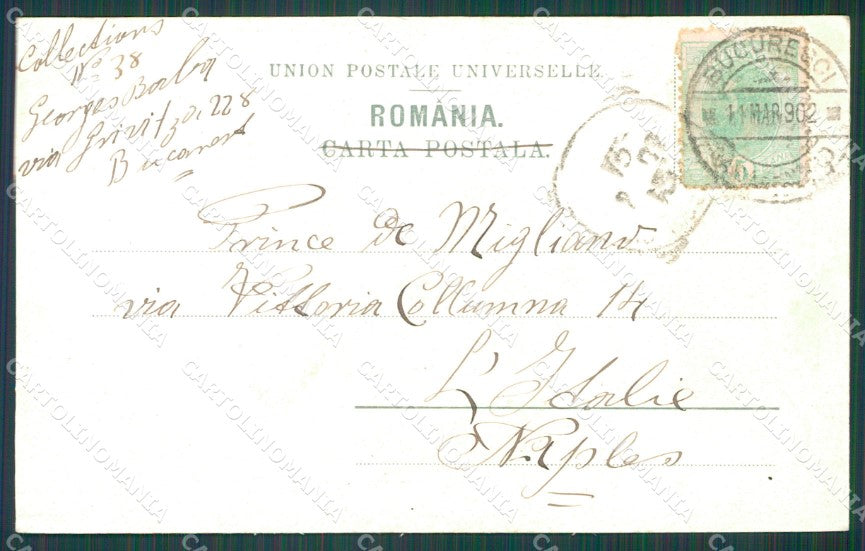 Collections
No 38
Georges
via Grivitza, 228
Bucarest
UNION POSTALE UNIVERSELLE
ROMÂNIA.
CARTA POSTALA.
BUCURESCI
11 MAR 902
Prince de Migliano
via Vittoria Collumna 14
L'Italie
Naples
CARTOLINOMANIA